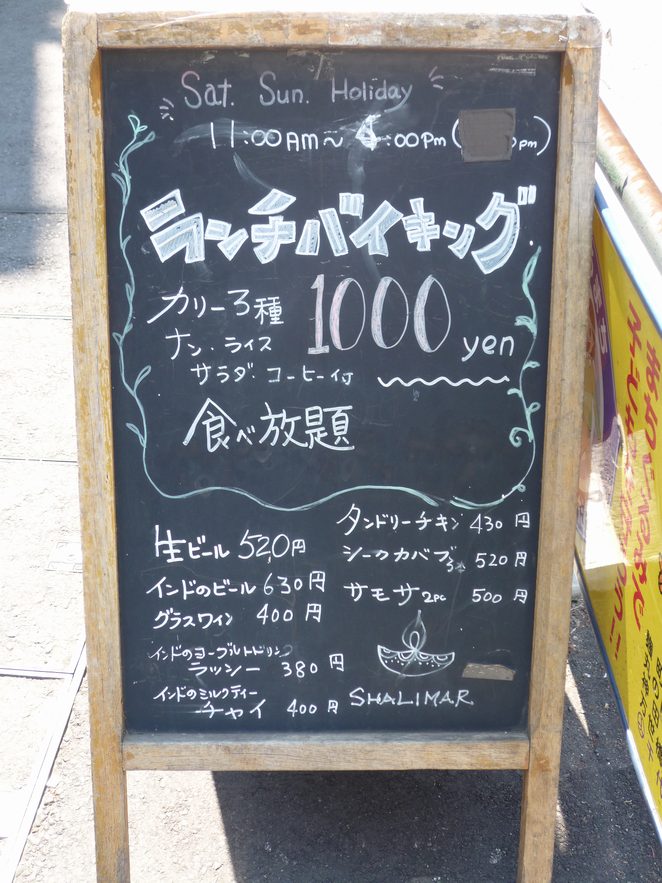 Sat. Sun. Holiday
11:00AM~4:00Pm ( pm)
ランチバイキング
カリー3種 1000 yen
ナン・ライス
サラダ・コーヒー付
食べ放題
生ビール 520円
インドのビール 630円
グラスワイン 400円
インドのヨーグルトドリンク
ラッシー 380円
インドのミルクティー
チャイ 400円
タンドリーチキン 430円
シークカバブ 520円
サモサ2pc 500円
SHALIMAR